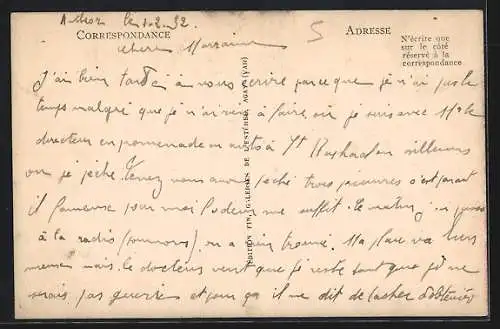 Anthéor le 1-2-32
CORRESPONDANCE
ADRESSE
5
N'écrite que
sur le côté
réservé à la
correspondance
chère Marraine
J'ai bien tardé à vous écrire parce que je n'ai pas le
temps malgré que je n'ai rien à faire, car je suis avec M. le
directeur en promenade en auto à St Raphael ou ailleurs
ou je pêche. Tenez nous avons pêché trois pieuvres c'est parait
il fameuse pour moi l'odeur me suffit. Le matin j'ai passé
à la radio (poumons), on a rien trouvé. Ma plaie va bien
même mais le docteur veut que je reste tant que je ne
serais pas guerie et pour ça il me dit de tacher d'obtenir
EDITION FIN, GALERIES DE L'ESTÉREL, AGAY (VAR)